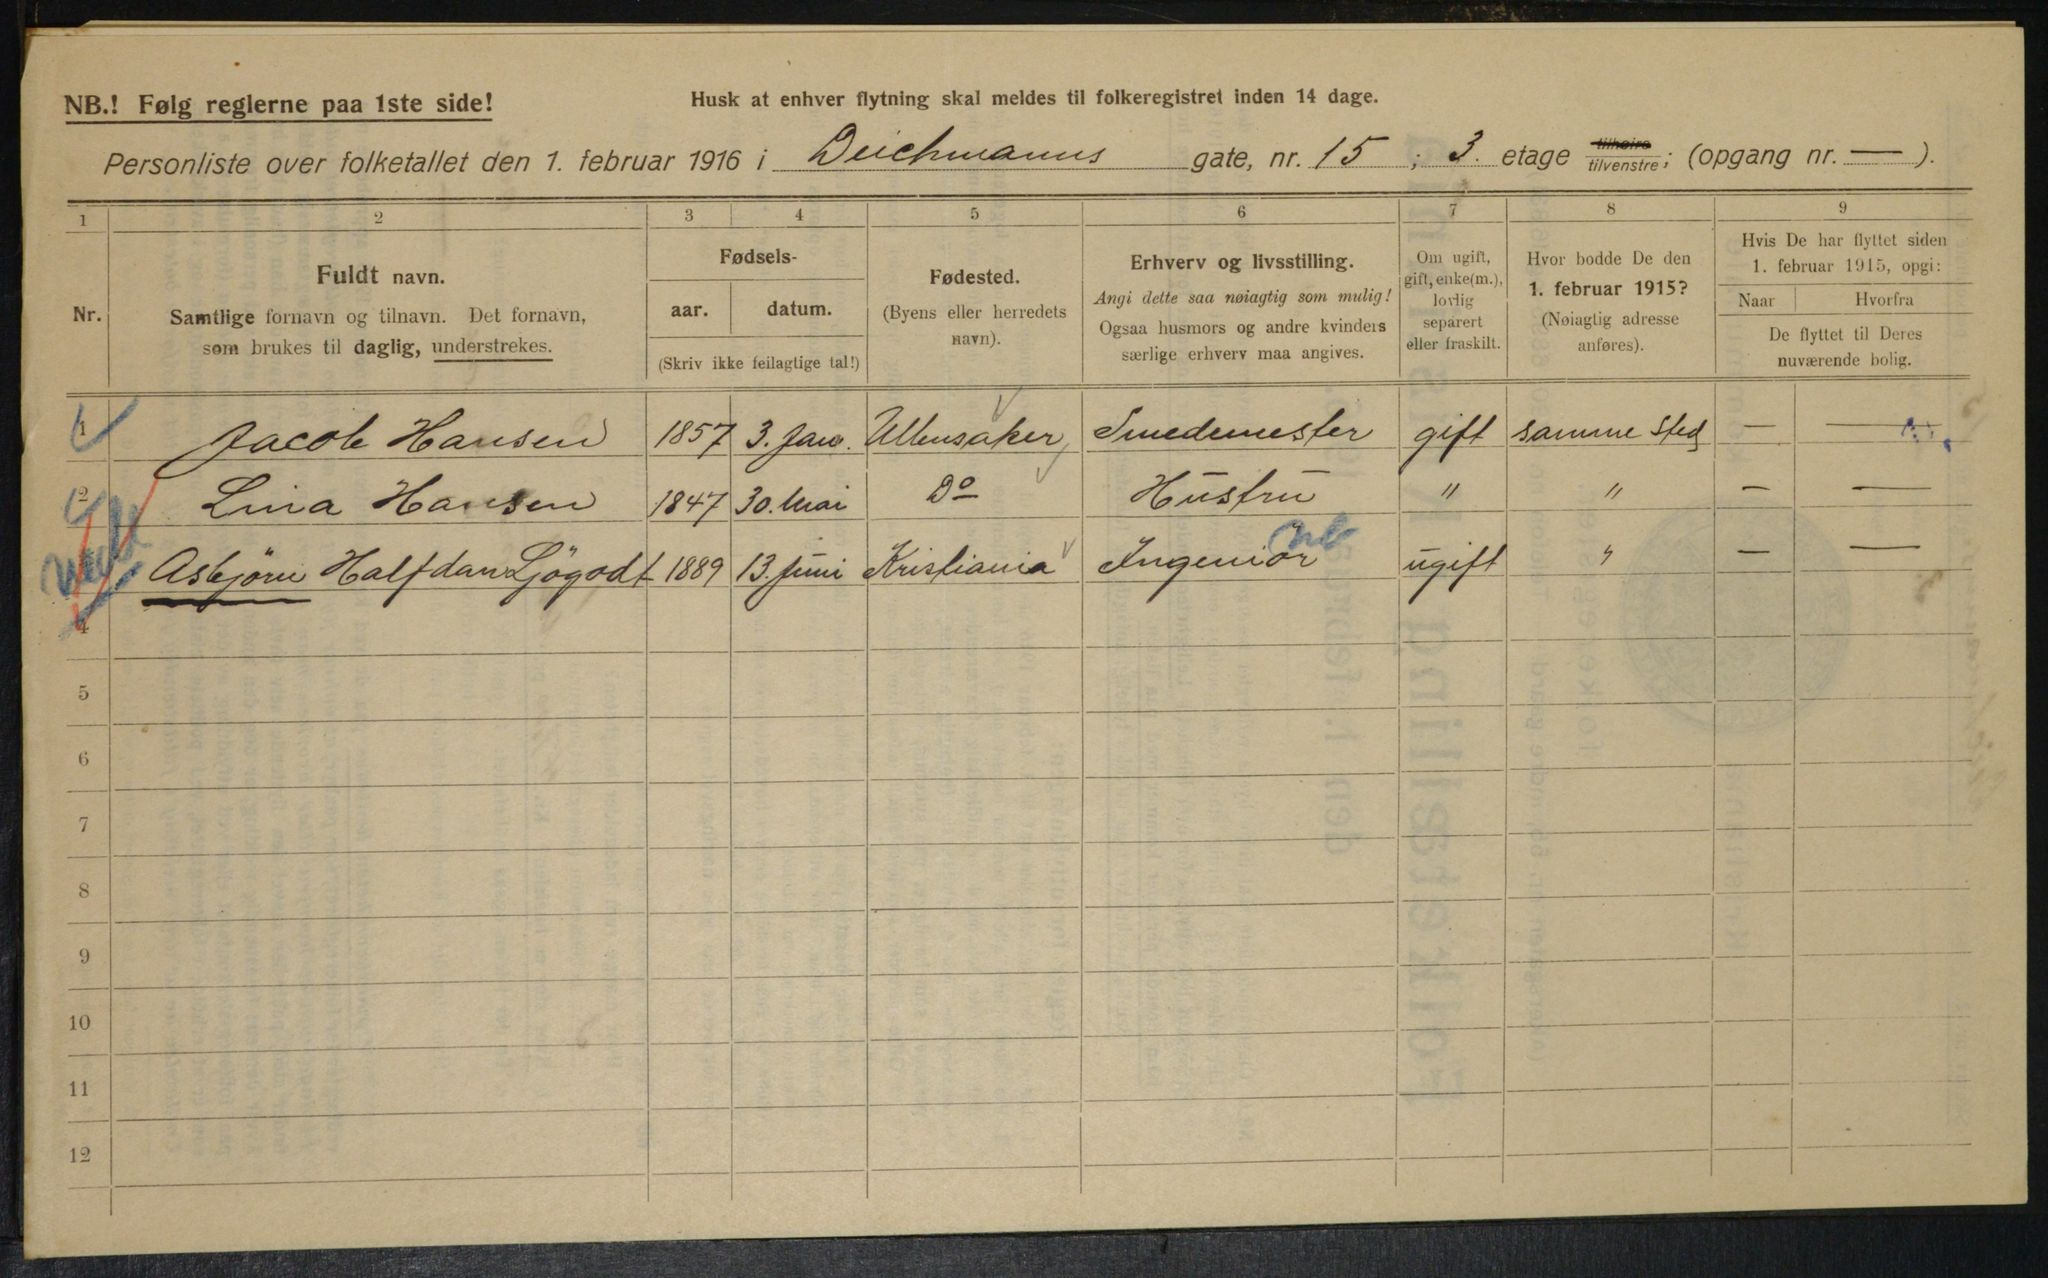 NB.! Følg reglerne paa 1ste side!
Husk at enhver flytning skal meldes til folkeregistret inden 14 dage.
Personliste over folketallet den 1. februar 1916 i Deichmanns gate, nr. 15 ; 3. etage tilhøire tilvenstre; (opgang nr. — ).
1 2 3 4 5 6 7 8 9
Nr.
Fuldt navn.
Samtlige fornavn og tilnavn. Det fornavn,
som brukes til daglig, understrekes.
Fødsels-
aar. datum.
(Skriv ikke feilagtige tal!)
Fødested.
(Byens eller herredets
navn).
Erhverv og livsstilling.
Angi dette saa nøiagtig som mulig!
Ogsaa husmors og andre kvinders
særlige erhverv maa angives.
Om ugift,
gift, enke(m.),
lovlig
separert
eller fraskilt.
Hvor bodde De den
1. februar 1915?
(Nøiagtig adresse
anføres).
Hvis De har flyttet siden
1. februar 1915, opgi:
Naar Hvorfra
De flyttet til Deres
nuværende bolig.
1 Jacob Hansen 1857 3. Jan. Ullensaker Smedemester gift samme sted — —
2 Lina Hansen 1847 30. Mai Do Hustru " " — —
Asbjørn Halfdan Ljögodt 1889 13. Juni Kristiania Ingeniör ugift " — —
4
5
6
7
8
9
10
11
12